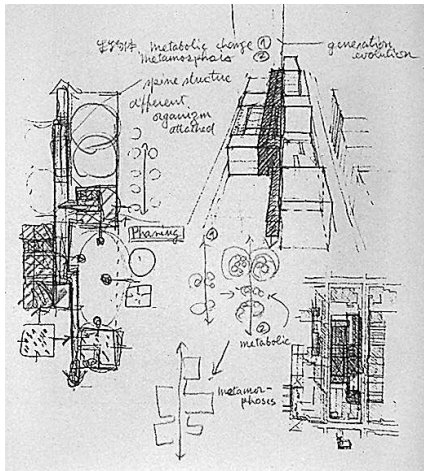 Metabolic change ①
Metamorphosis ②
generation
evolution
spine structure
different
organism
attached
Phasing
①
②
metabolic
metamor-
phosis